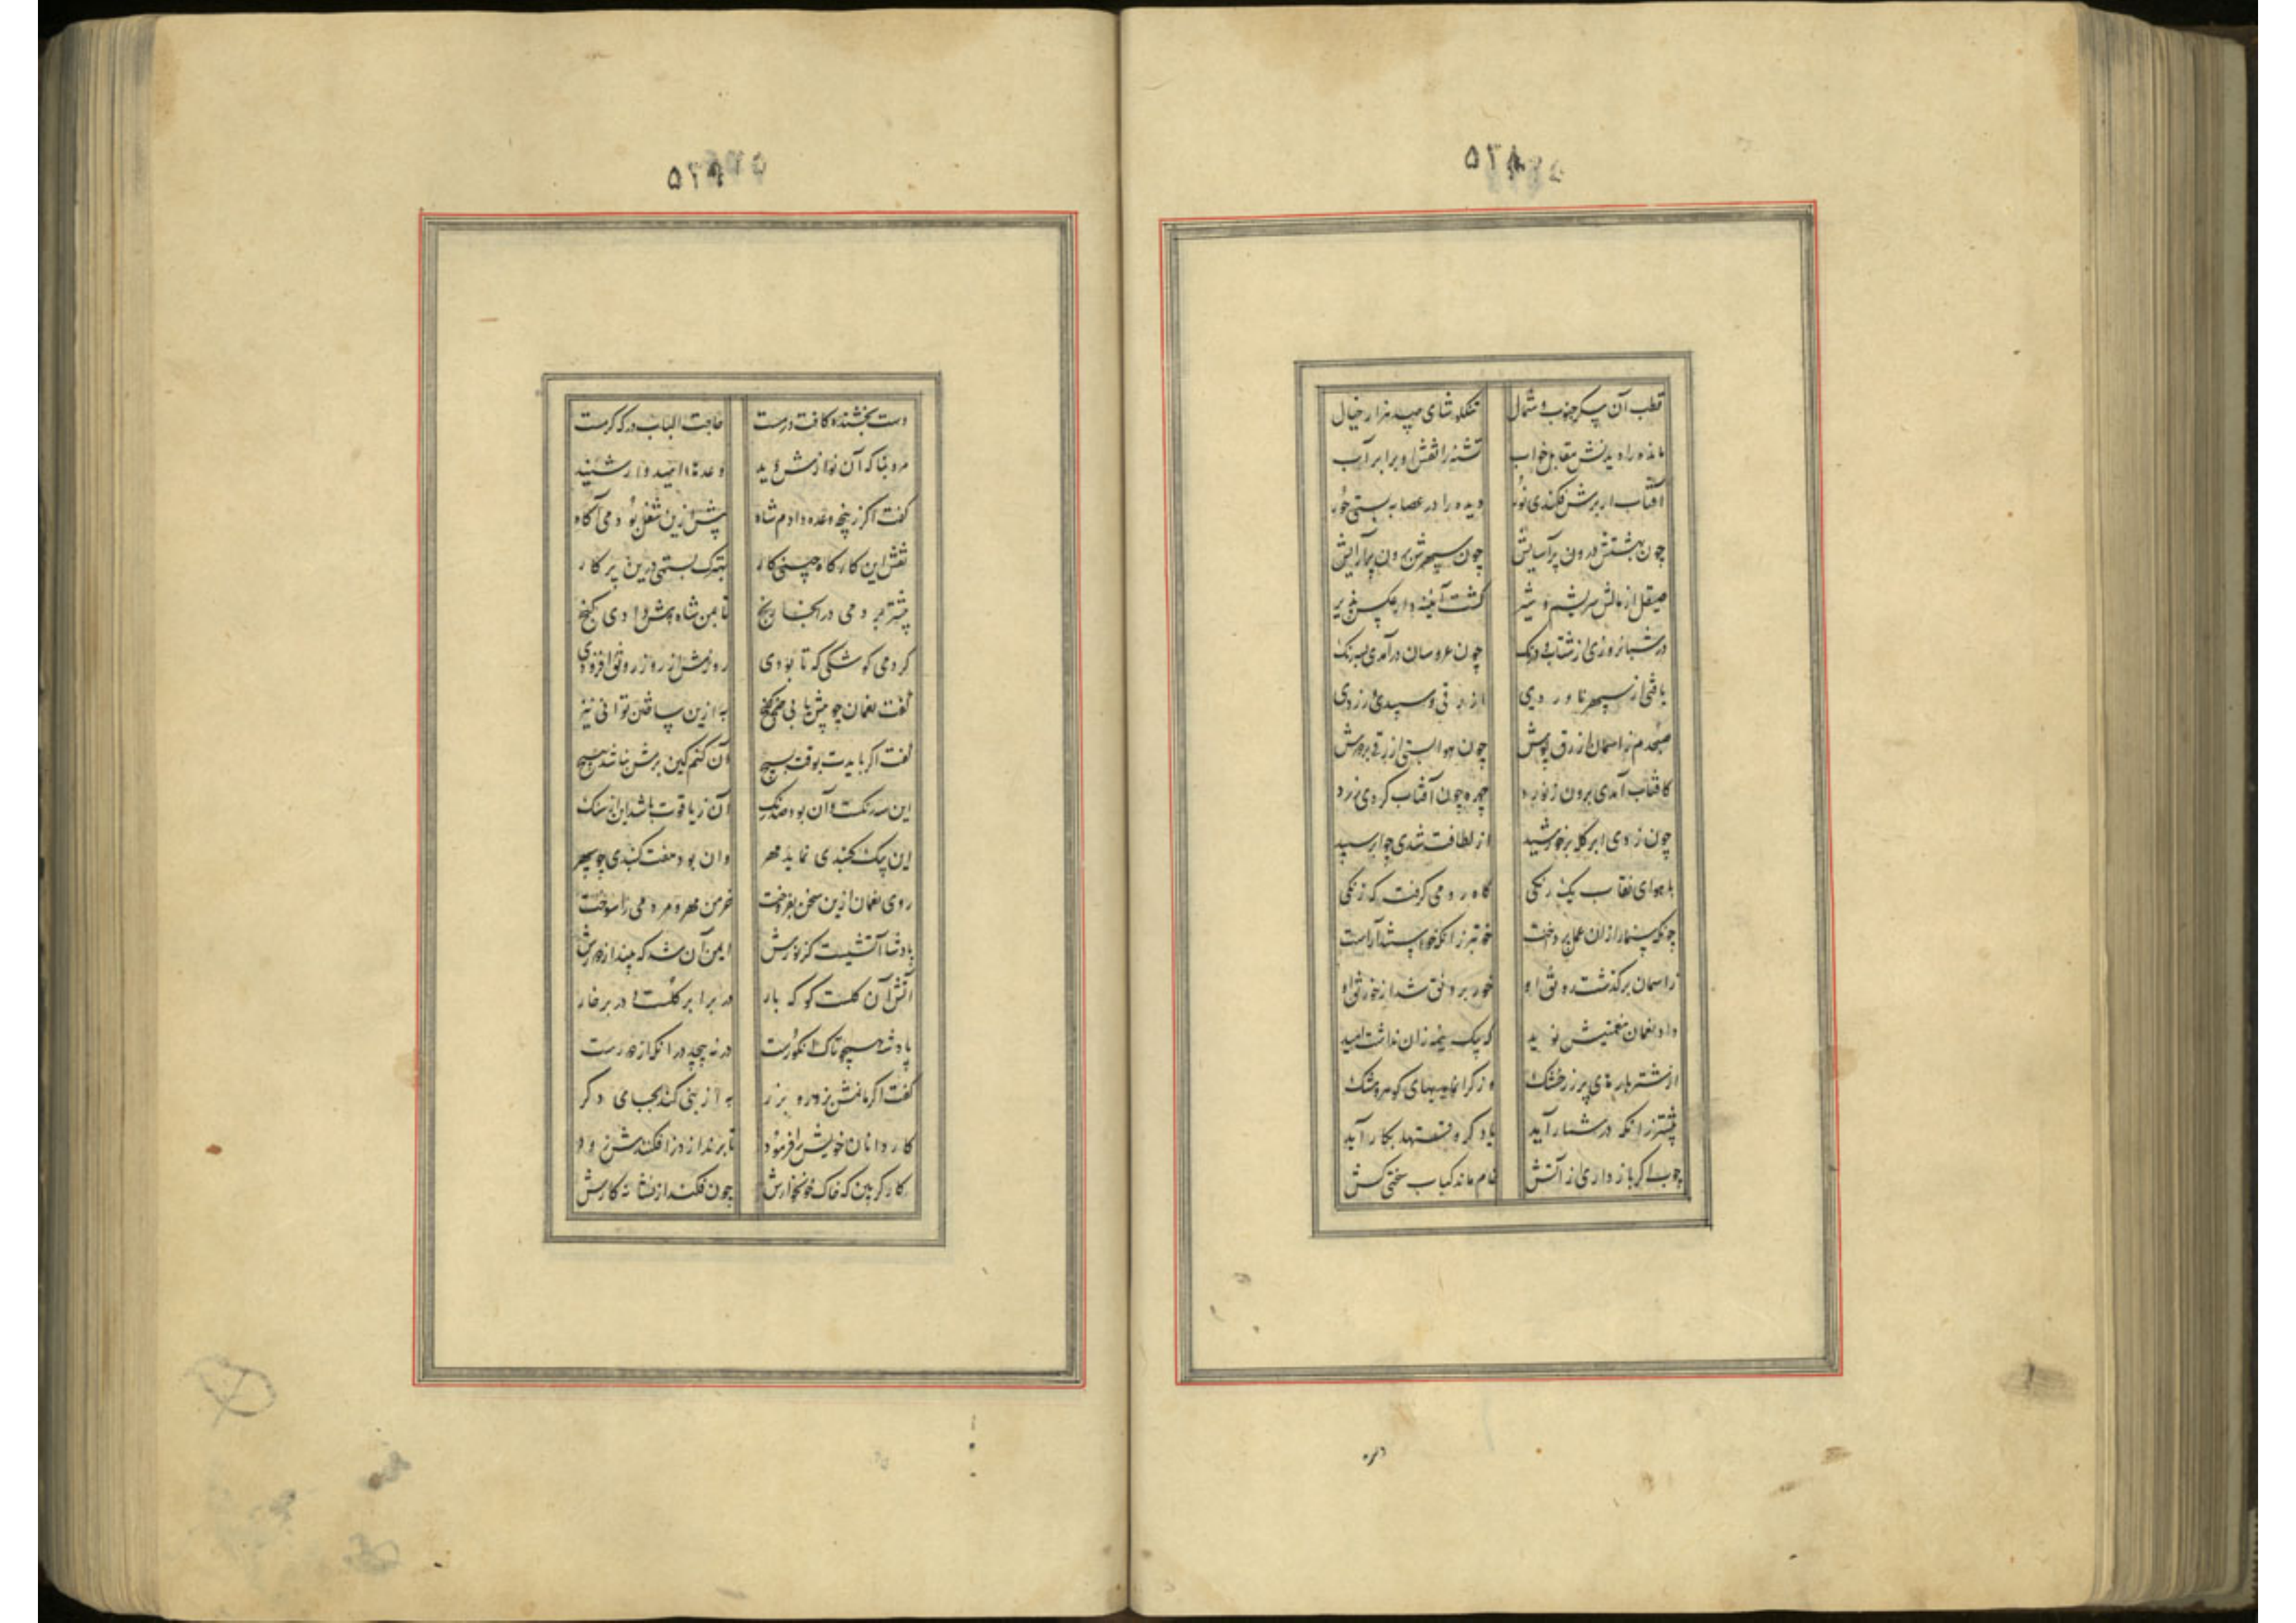 ۵۲۸
قطب آن پیکر جنوب و شمال تنکلوشای صد هزار خیال
مانده را دیدنش مقابل خواب تشنه را نقش او برابر آب
آفتاب ار برش فکندی نور دیده را در عصابه بستی حور
چون بهشتش درون پرآسایش چون سپهرش برون پرآرایش
صیقل از مالش سریشم و شیر گشت آئینه وار عکس پذیر
در شبانروزی از شتاب و درنک چون عروسان درآمدی بسه رنک
یافتی از سپهر ناوردی ازرقی و سپیدی و زردی
صبحدم ز آسمان ازرق پوش چون هوا بستی ازرقی بر دوش
کافتاب آمدی برون ز نورد چهره چون آفتاب کردی زرد
چون زدی ابر کله بر خورشید از لطافت شدی چو ابر سپید
با هوای نقاب یک رنکی گاه رومی گرفت که زنکی
چونکه سنمار ازان عمل پرداخت خوبتر زانکه خواستند آراست
ز اسمان برکذشت رونق او خور برونق شد از خورنق او
داد نعمان بنعمتیش نوید که یک نیمه زان نداشت امید
از شتر بارهای پر زر خشک وز گرانمایهای گوهر و مشک
بیشتر زانکه در شمار آید یاد کرد و نعمتها بکار آید
چوب اکر باز داری از آتش خام ماند کباب سختی کش
۵۲۹
دست بخشنده کافت درمست حاجت الباب درکه کرمست
مرد بنا که آن نوازش دید وعدهای امیدوار شنید
گفت اگر زنچه وعده دادم شاه پیش ازین شغل بودمی آگاه
نقش این کارگاه چینی کار بهترک بستمی درین پرکار
بیشتر بردمی در اینجا رنج تا بمن شاه بیش دادی گنج
کردمی کوشکی که تا بودی روزش از روز رونق افزودی
گفت نعمان چو بیش یابی چیز به ازین ساختن توانی نیز
گفت اگر بایدت بوقت بسیج آن کنم کین برش نباشد هیچ
این سه رنکست و آن بود صد رنک آن ز یاقوت باشد این از سنک
این یک گنبدی نماید مهر وان بود هفت گنبدی چو سپهر
روی نعمان ازین سخن بفروخت خرمن مهر و مردمی را سوخت
پادشا آتشیست کز نورش ایمن آن شد که بیند از دورش
آتش آن گلست کو که بار در برابر گلست و در بر خار
پادشه همچو تاک انگورست درنپیچد در آنکه ازو دورست
گفت اگر مانمش بزور و بزر به از بنی کند بجای دگر
کاردانان خویش را فرمود تا برند از دز افکنندش زود
کارگر بین که خاک خونخوارش چون فکند از نشانه کارش